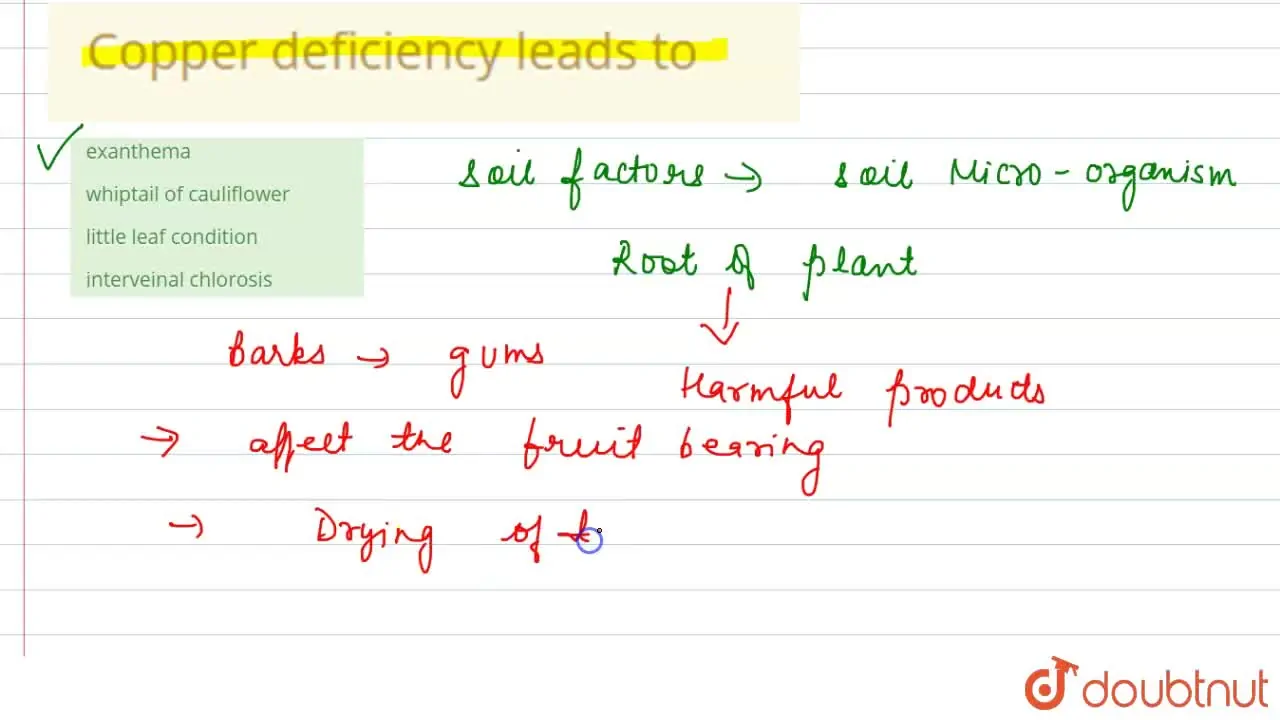 Copper deficiency leads to
exanthema
whiptail of cauliflower
little leaf condition
interveinal chlorosis
soil factors → soil Micro-organism
Root of plant
Barks → gums
Harmful products
→ affect the fruit bearing
→ Drying of t
doubtnut